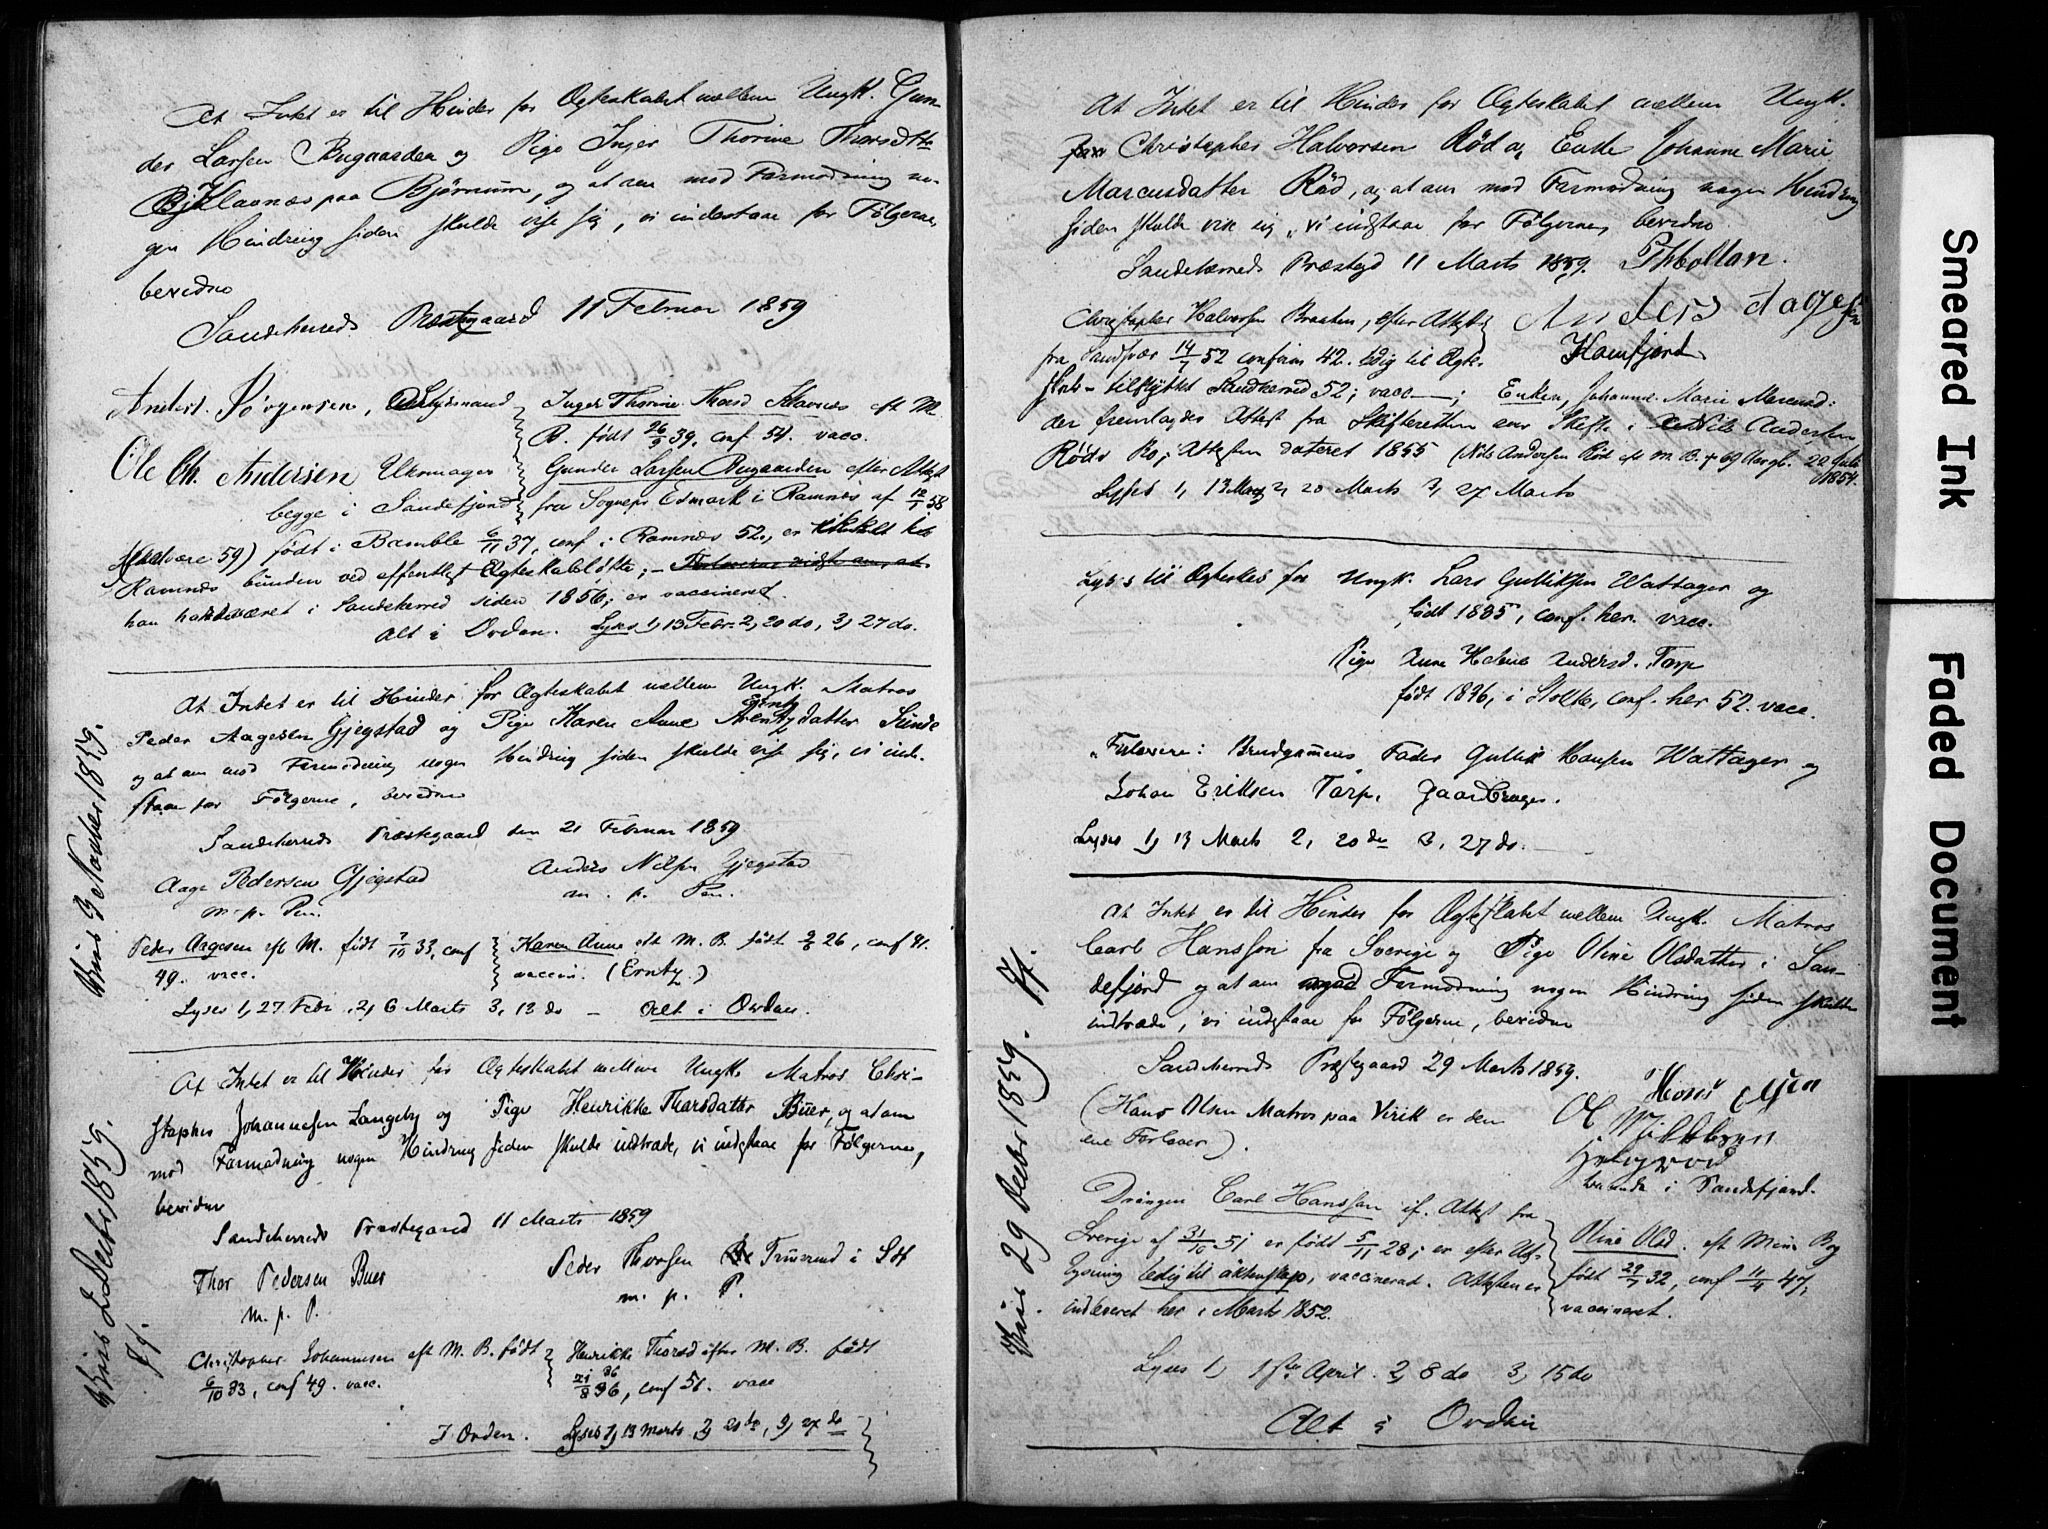 At Intet er til Hinder for Ægteskabet mellem Ungk. Gun-
der Larsen Bugaarden og Pige Inger Thorine Thorsdtr
Klavnæs paa Bjørnum, og at om mod Formodning no-
gen Hindring siden skulde vise sig, vi indestaae for Følgerne,
bevidne
Sandeherreds Præstegaard 11 Februar 1859
Anders Jörgensen,
Ole Ch. Andersen Uhrmager
begge i Sandefjord
Inger Thorine Thorsd Klavnæs eft M.
B. født 26/9 39, conf 54. vacc.
Gunder Larsen Bugaarden efter Attest
fra Sognepr Esmark i Ramnæs af 12/1 58
født i Bamble 6/11 37, conf i Ramnæs 52, er
Ramnæs bunden ved offentligt Ægteskabsløfte; –
han har været i Sandeherred siden 1856; er vaccineret.
Alt i Orden. Lyses 1, 13 Febr. 2, 20 do, 3, 27 do.
At Intet er til Hinder for Ægteskabet mellem Ungk. Matros
Peder Aagesen Gjegstad og Pige Karen Anne Ernty datter Sunde
og at om mod Formodning nogen Hindring siden skulde vise sig, vi inde-
staae for Følgerne, bevidne
Sandeherreds Præstegaard den 21 Februar 1859
Aage Pedersen Gjegstad
m. p. Pen.
Anders Nilsen Gjegstad
m. p. Pen.
Peder Aagesen eft M. født 7/10 33, conf
49. vacc.
Karen Anne eft M. B. født 26, conf 41.
vaccin. (Ernty)
Lyses 1, 27 Febr, 2, 6 Marts 3, 13 do – Alt i Orden.
At Intet er til Hinder for Ægteskabet mellem Ungk. Matros Chri-
stopher Johannesen Langeby og Pige Henrikke Thorsdatter Buer, og at om
mod Formodning nogen Hindring siden skulde indtræde, vi indestaae for Følgerne,
bevidne
Sandeherreds Præstegaard 11 Marts 1859
Thor Pedersen Buer
m. p. P.
Peder Thorsen i
m. p. P.
Christopher Johannesen eft M. B. født
6/10 33, conf 49. vacc.
Henrikke Thorsd efter M. B. født
21/8 36, conf 51. vacc
I Orden. Lyses 1, 13 Marts, 2, 20 do, 3, 27 do
At Intet er til Hinder for Ægteskabet mellem Ungk.
Christopher Halvorsen Röd og Enke Johanne Marie
Marcusdatter Röd, og at om mod Formodning nogen Hindring
siden skulde vise sig, vi indestaae for Følgerne, bevidne
Sandeherreds Præstegd 11 Marts 1859.
Anders
Kamfjord
Christopher Halvorsen Braaten, efter Attest
fra Sandsvær 14/7 52 confirm 42. ledig til Ægte-
skab – tilflyttet Sandeherred 52; vacc —; Enken, Johanne Marie Marcusd:
der fremlagdes Attest fra Skifteretten om Skifte i Nils Andersen
Röds Bo; Attesten dateret 1855 (Nils Andersen Röd eft M. B. 1854.
Lyses 1, 13 Marts 2, 20 Marts 3, 27 Marts
Lyses til Ægteskab for Ungk. Lars Gulliksen Wattager og
født 1835, conf. her. vacc.
Pige Anne Helene Andersd. Torp
født 1836, i Stokke, conf. her 52. vacc.
Forlovere: Brudgommens Fader Gullik Hansen Wattager og
Johan Eriksen Torp, Gaardbruger.
Lyses 1, 13 Marts 2, 20 do 3, 27 do.
At Intet er til Hinder for Ægteskabet mellem Ungk. Matros
Carl Hansson fra Sverige og Pige Oline Olsdatter i San-
defjord og at om mod Formodning nogen Hindring siden skulde
indtræde, vi indestaae for Følgerne, bevidne
Sandeherreds Præstegaard 29 Marts 1859.
(Hans Olsen Matros paa Virik er den
ene Forlover).
Hans Olsen
boende i Sandefjord.
Drängen Carl Hansson if. Attest fra
Sverige af 31/10 51 er født 5/11 28; er efter Ud-
lysning ledig til äktenskap, vaccinerad. Attesten er
indleveret her i Marts 1852.
Oline Olsd. eft Min. Bog
født 29/7 32, conf 11/4 47,
vaccineret.
Lyses 1, 1ste April. 2, 8 do 3, 15 do
Alt i Orden
Smeared Ink
Faded Document